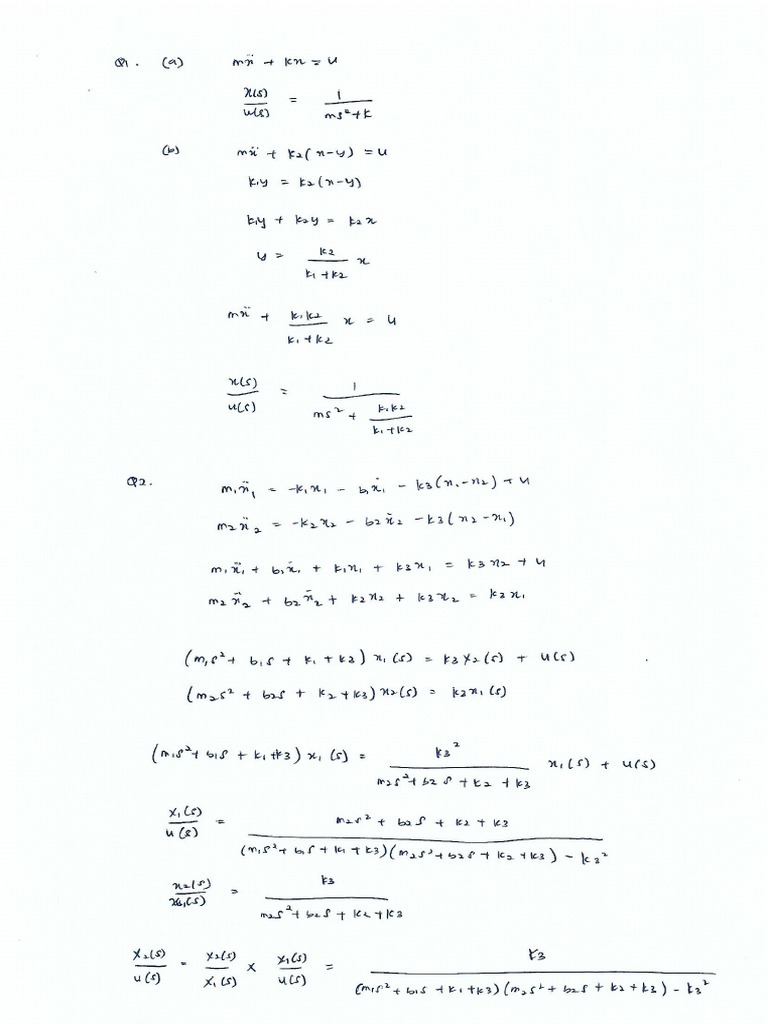 Q1. (a) mẍ + kx = u
x(s)/u(s) = 1/(ms²+k)
(b) mẍ + k2(x-y) = u
k1y = k2(x-y)
k1y + k2y = k2x
y = k2/(k1+k2) x
mẍ + k1k2/(k1+k2) x = u
x(s)/u(s) = 1/(ms² + k1k2/(k1+k2))
Q2. m1ẍ1 = -k1x1 - b1ẋ1 - k3(x1-x2) + u
m2ẍ2 = -k2x2 - b2ẋ2 - k3(x2-x1)
m1ẍ1 + b1ẋ1 + k1x1 + k3x1 = k3x2 + u
m2ẍ2 + b2ẋ2 + k2x2 + k3x2 = k3x1
(m1s² + b1s + k1 + k3) x1(s) = k3x2(s) + u(s)
(m2s² + b2s + k2 + k3) x2(s) = k3x1(s)
(m1s² + b1s + k1 + k3) x1(s) = k3²/(m2s² + b2s + k2 + k3) x1(s) + u(s)
x1(s)/u(s) = (m2s² + b2s + k2 + k3)/((m1s² + b1s + k1 + k3)(m2s² + b2s + k2 + k3) - k3²)
x2(s)/x1(s) = k3/(m2s² + b2s + k2 + k3)
x2(s)/u(s) = x2(s)/x1(s) × x1(s)/u(s) = k3/((m1s² + b1s + k1 + k3)(m2s² + b2s + k2 + k3) - k3²)